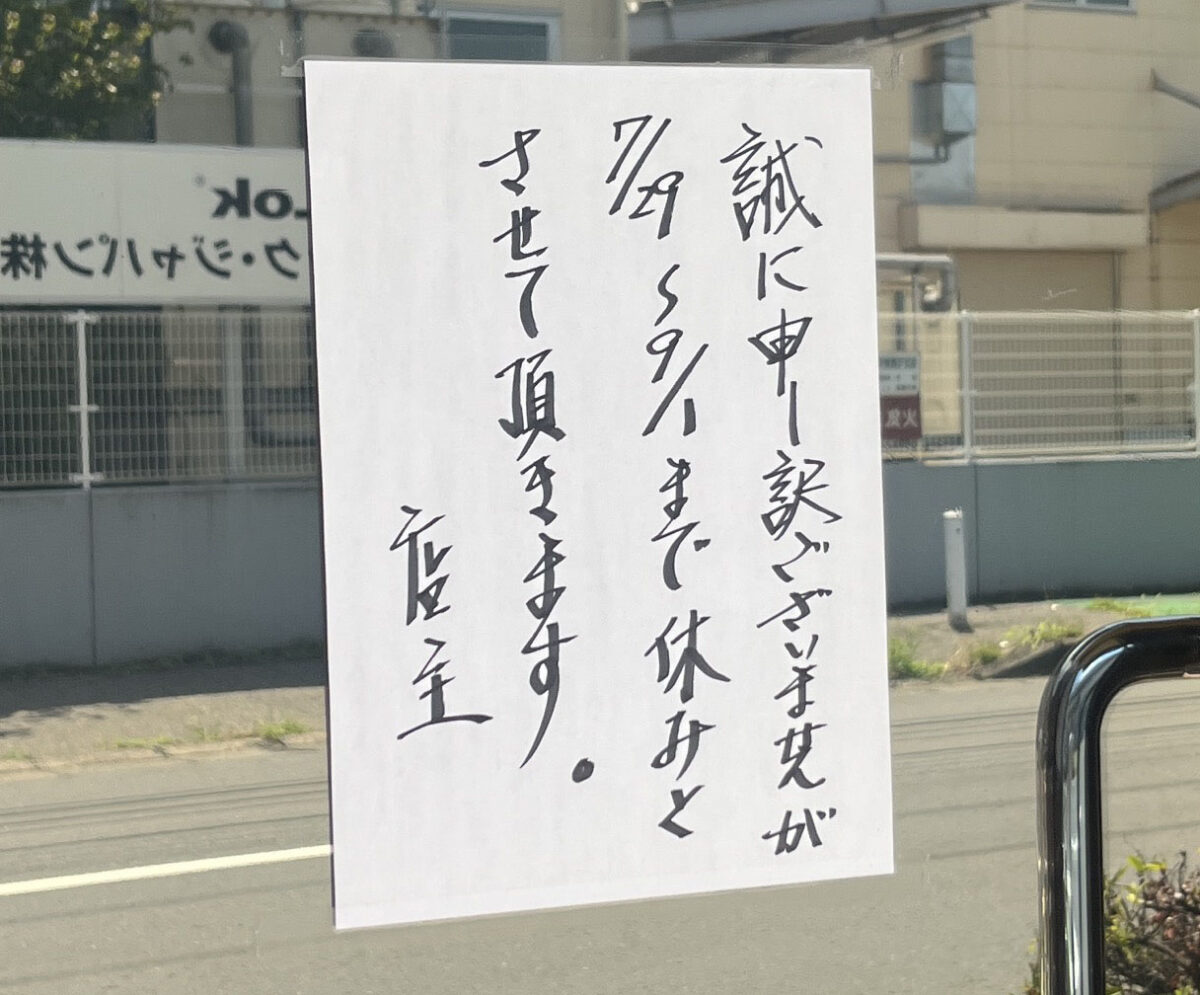 誠に申し訳ございませんが
7/29〜9/1まで休みと
させて頂きます。
店主
Lok
ク・ジャパン株